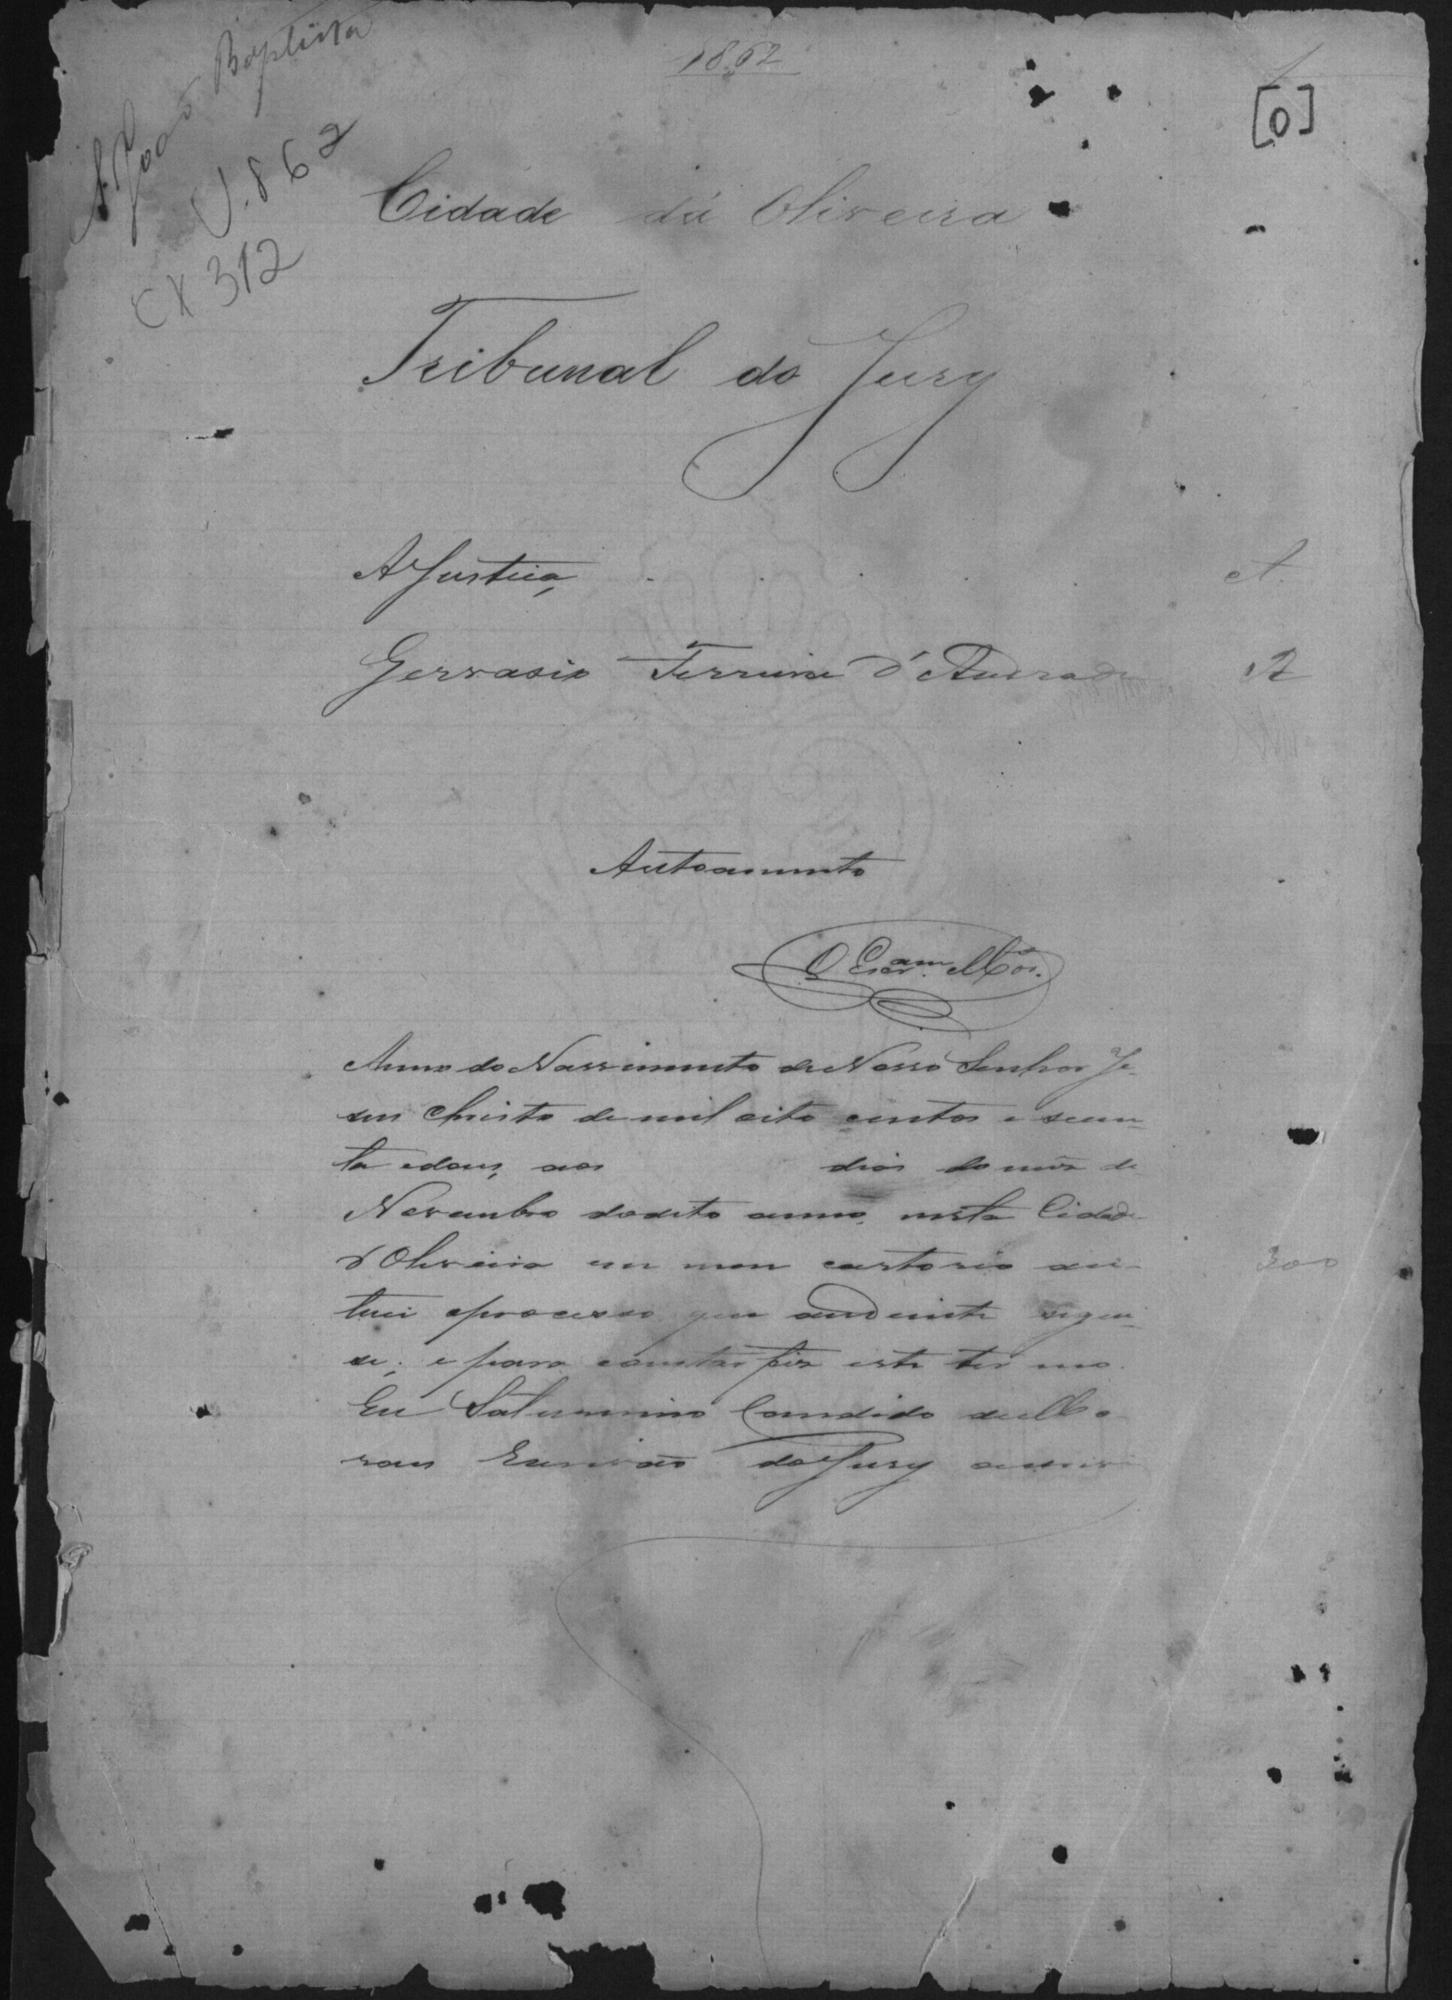 1862
S. João Baptista
1.862
CX 312
[0]
Cidade da Oliveira
Tribunal do Jury
A Justiça, A.
Gervasio Ferreira d'Andrade R
Autoamento
O Escr.am Mo.es
Anno do Nascimento de Nosso Senhor Je-
sus Christo de mil oito centos e secen-
ta e dous, aos dias do mez de
Novembro do dito anno, nesta Cidade
d'Oliveira em meu cartorio au-
tuei o processo que audiente segue
se; e para constar fiz este termo.
Eu Saturnino Candido de Mo-
raes Escrivão do Jury escrevi
300